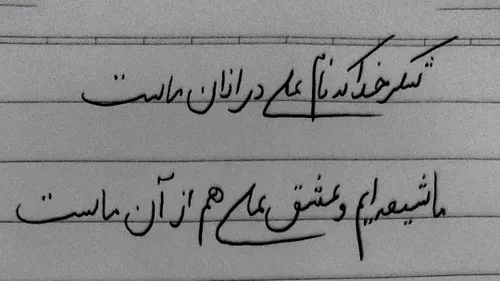 شکر خدا که نام علی در اذان ماست
ما شیعه ایم و عشق علی هم از آن ماست